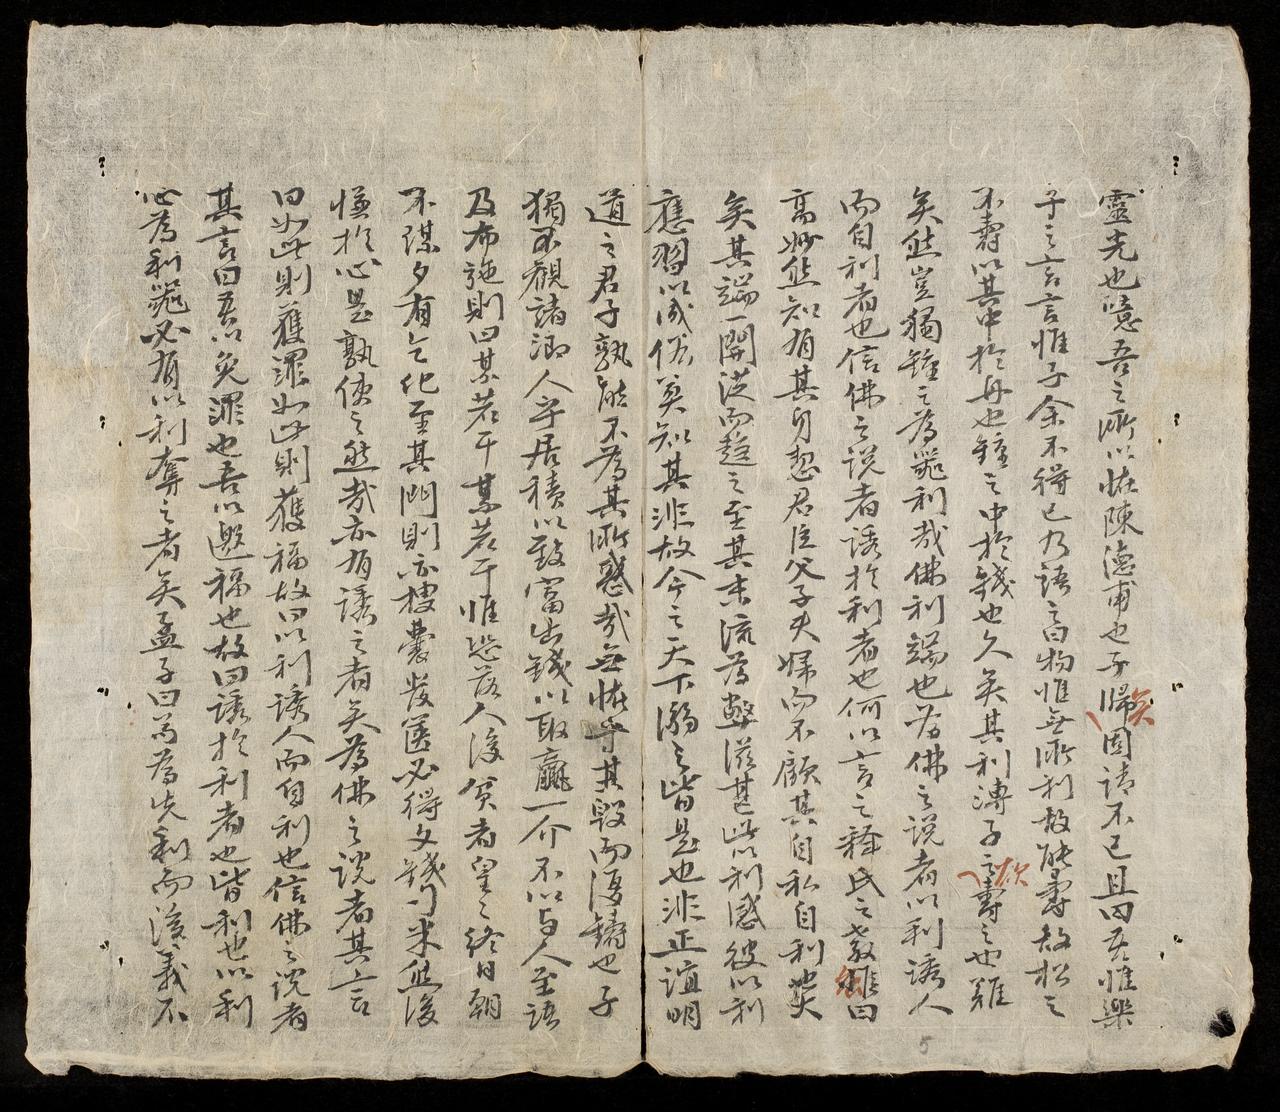 靈光也噫吾之所以怪陳德甫也子歸固請不已且曰吾惟樂
矣
子之言言惟子余不得已乃語之曰物惟無所利故能壽故松之
不壽以其中於舟也鐘之中於錢也久矣其利溥子之壽之也難
欤
矣然豈獨鐘之為器利哉佛利端也为佛之説者以利誘人
而自利者也信佛之説者誘於利者也何以言之釋氏之教雖曰
高妙然知有其身恝君臣父子夫婦而不顧其自私自利
矣其端一開従而趍之至其末流為弊滋甚此以利感彼以利
應習以成俗莫知其非故今之天下溺之皆是也非正誼明
道之君子孰能不為其所惑哉無怪乎其毀而復鑄也子
獨不觀諸鄉人乎居積以致富出錢以取贏一介不以与人至語
及布施則曰某若干某若干惟恐落人後貧者皇之終日朝
不謀夕有乞化至其門則亦搜囊發篋必得文錢勺米然後
慊於心是孰使之然哉亦有誘之者矣為佛之説者其言
曰如此則獲罪如此則獲福故曰以利誘人而自利也信佛之説者
其言曰吾以免罪也吾以邀福也故曰誘於利者也皆利也以利
心為利器必有以利奪之者矣孟子曰苟為先利而後義不
5